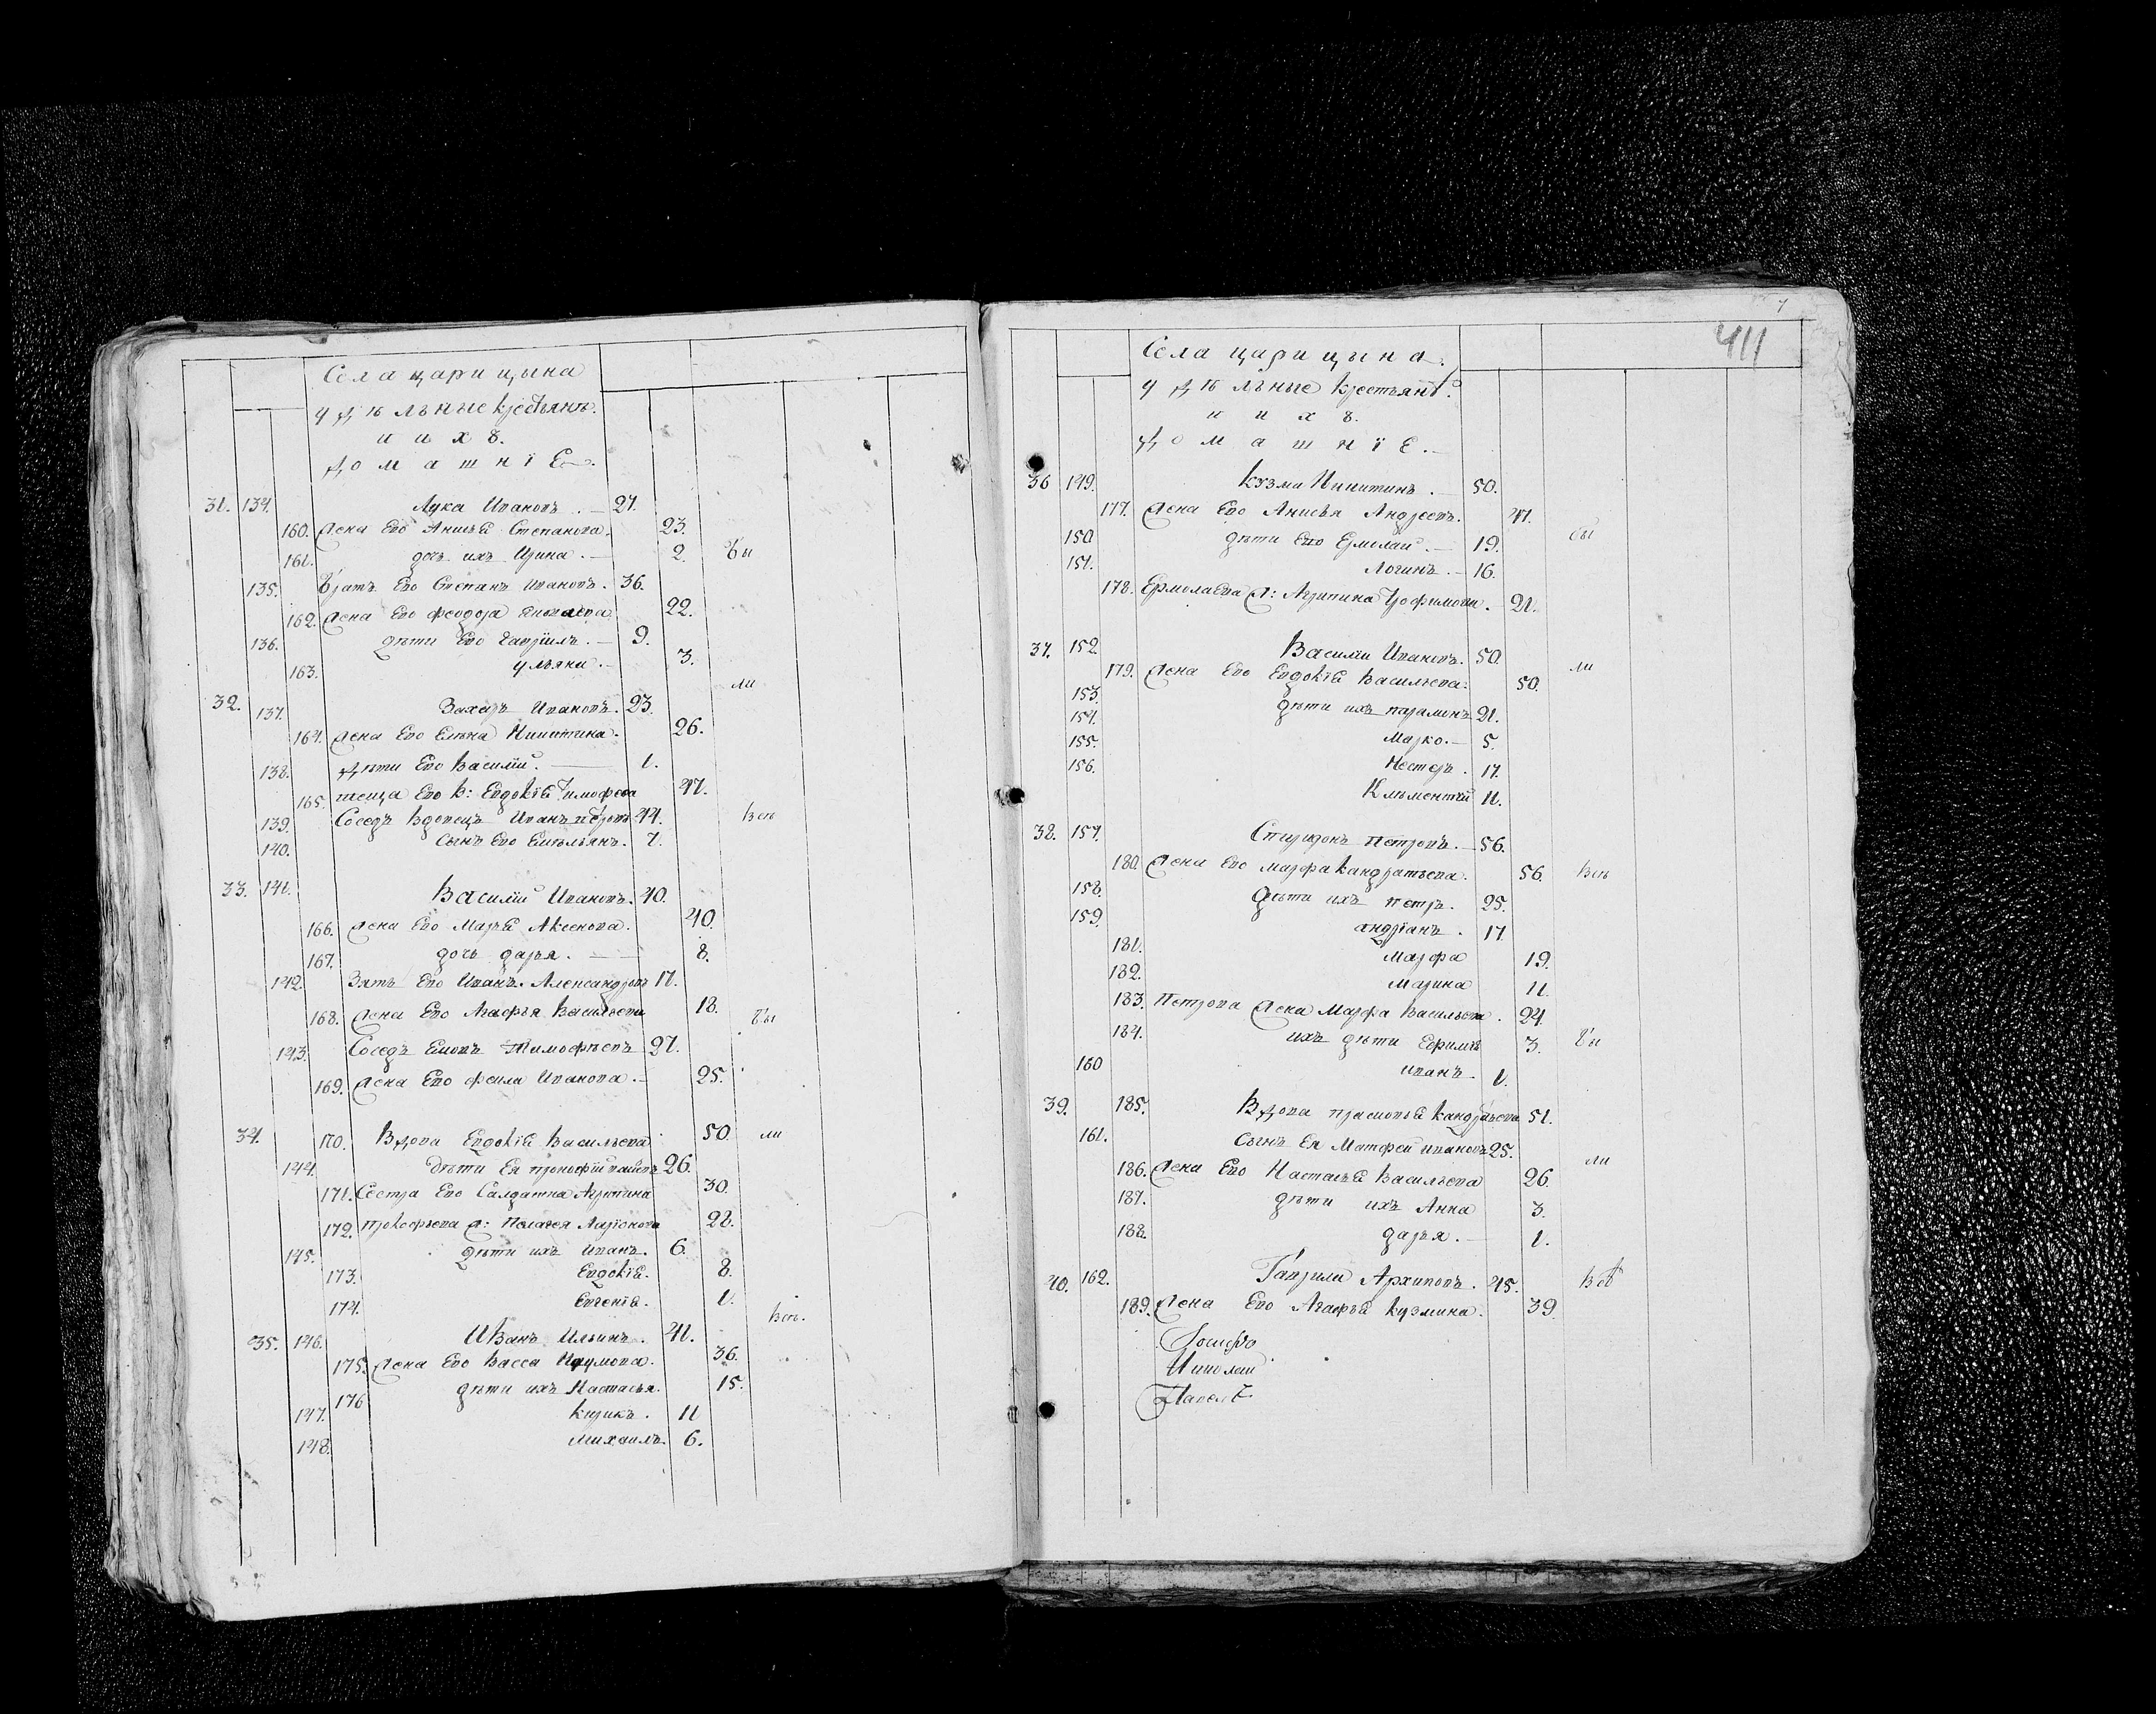 Села царицына
удѣльные крестьянѣ.
и ихъ
домашнїе.
31. 134. Лука Ивановъ. 27.
160. Жена Его Анисья Степанова. 23.
161. дочь ихъ Ирина. 2. бы
135. братъ Его Степанъ Ивановъ. 36.
162. Жена Его Феодора 22.
136. дѣти Его Гаврїилъ. 9.
163. ульяна. 3.
ли
32. 137. Захаръ Ивановъ. 23.
164. Жена Его Елѣна Никитина. 26.
138. дѣти Его Василїй. 1.
165. теща Его в: Евдокїя Тимофеева 47.
139. Соседъ вдовецъ Иванъ петровъ 44. всѣ
140. сынъ Его Емельянъ. 7.
33. 141. Василїй Ивановъ. 40.
166. Жена Его Марья Аксенова. 40.
167. дочь дарья. 8.
142. Зять Его Иванъ Александровъ 17.
168. Жена Его Агафья Васильева 18. бы
143. Соседъ Тимофѣевъ 27.
169. Жена Его Фекла Иванова. 25.
34. 170. Вдова Евдокїя Васильева 50. ли
144. дѣти Ея прокофїй 26.
171. Сестра Его Салдатка Агрипина 30.
172. прокофьева ж: Пелагея Ларїонова 28.
145. дѣти ихъ Иванъ. 6.
173. Евдокїя. 8.
174. Евгенїя. 1.
всѣ.
35. 146. Иванъ Ильинъ. 41.
175. Жена Его Васса Наумова. 36.
176 дѣти ихъ Настасья. 15.
147. кирикъ. 11
148. михаилъ. 6.
7
411
Села царицына.
удѣльные крестьянѣ.
и ихъ.
домашнїе.
36 149. Кузма Никитинъ. 50.
177. Жена Его Анисья Андреевъ. 47.
150 дѣти Его Ермолай. 19. бы
151. Логинъ. 16.
178. Ермолаева ж: Агрипина Трофимова. 21.
37. 152. Василїй Ивановъ. 50. ли
179. Жена Его Евдокїя Васильева. 50.
153. дѣти ихъ парамонъ 21.
154. Марко. 5.
155. Нестеръ. 17.
156. Клѣментїй 11.
38. 157. Спиридонъ Петровъ. 56.
180. Жена Его марфа кандратьева. 56. всѣ
158. дѣти ихъ петръ. 25.
159. андрїанъ. 17
181. Марфа 19.
182. Марина 11.
183. Петрова Жена Марфа Васильева. 24.
184. ихъ дѣти Ефимья 3. бы
160 иванъ. 1.
39. 185. Вдова прасковья кандратьева 51.
161. сынъ Ея Матфей ивановъ 25. ли
186. Жена Его Настасья Васильева 26
187. дѣти ихъ Анна 3.
188. дарья. 1.
40. 162. Гаврила Архиповъ. 45. всѣ
189. Жена Его Агафья кузмина. 39
Николай